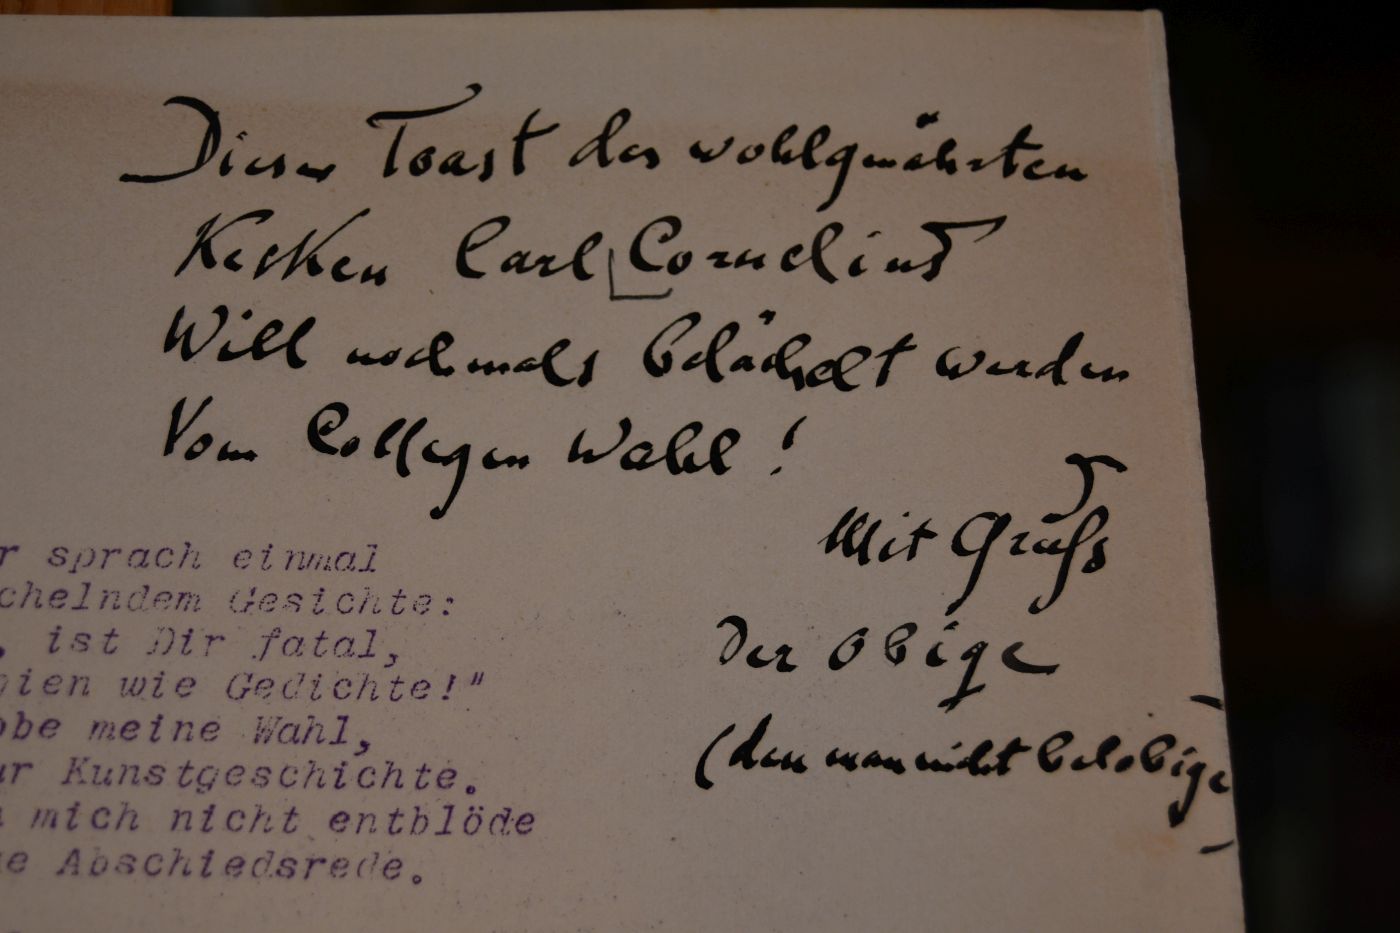 Dieser Toast des wohlgenährten
Kecken Carl Cornelius
Will nochmals belächelt werden
Vom Collegen Wahl!
Mit Gruß
Der Obige
(den man nicht belobige)
r sprach einmal
chelndem Gesichte:
, ist Dir fatal,
ien wie Gedichte!"
obe meine Wahl,
ur Kunstgeschichte.
mich nicht entblöde
e Abschiedsrede.